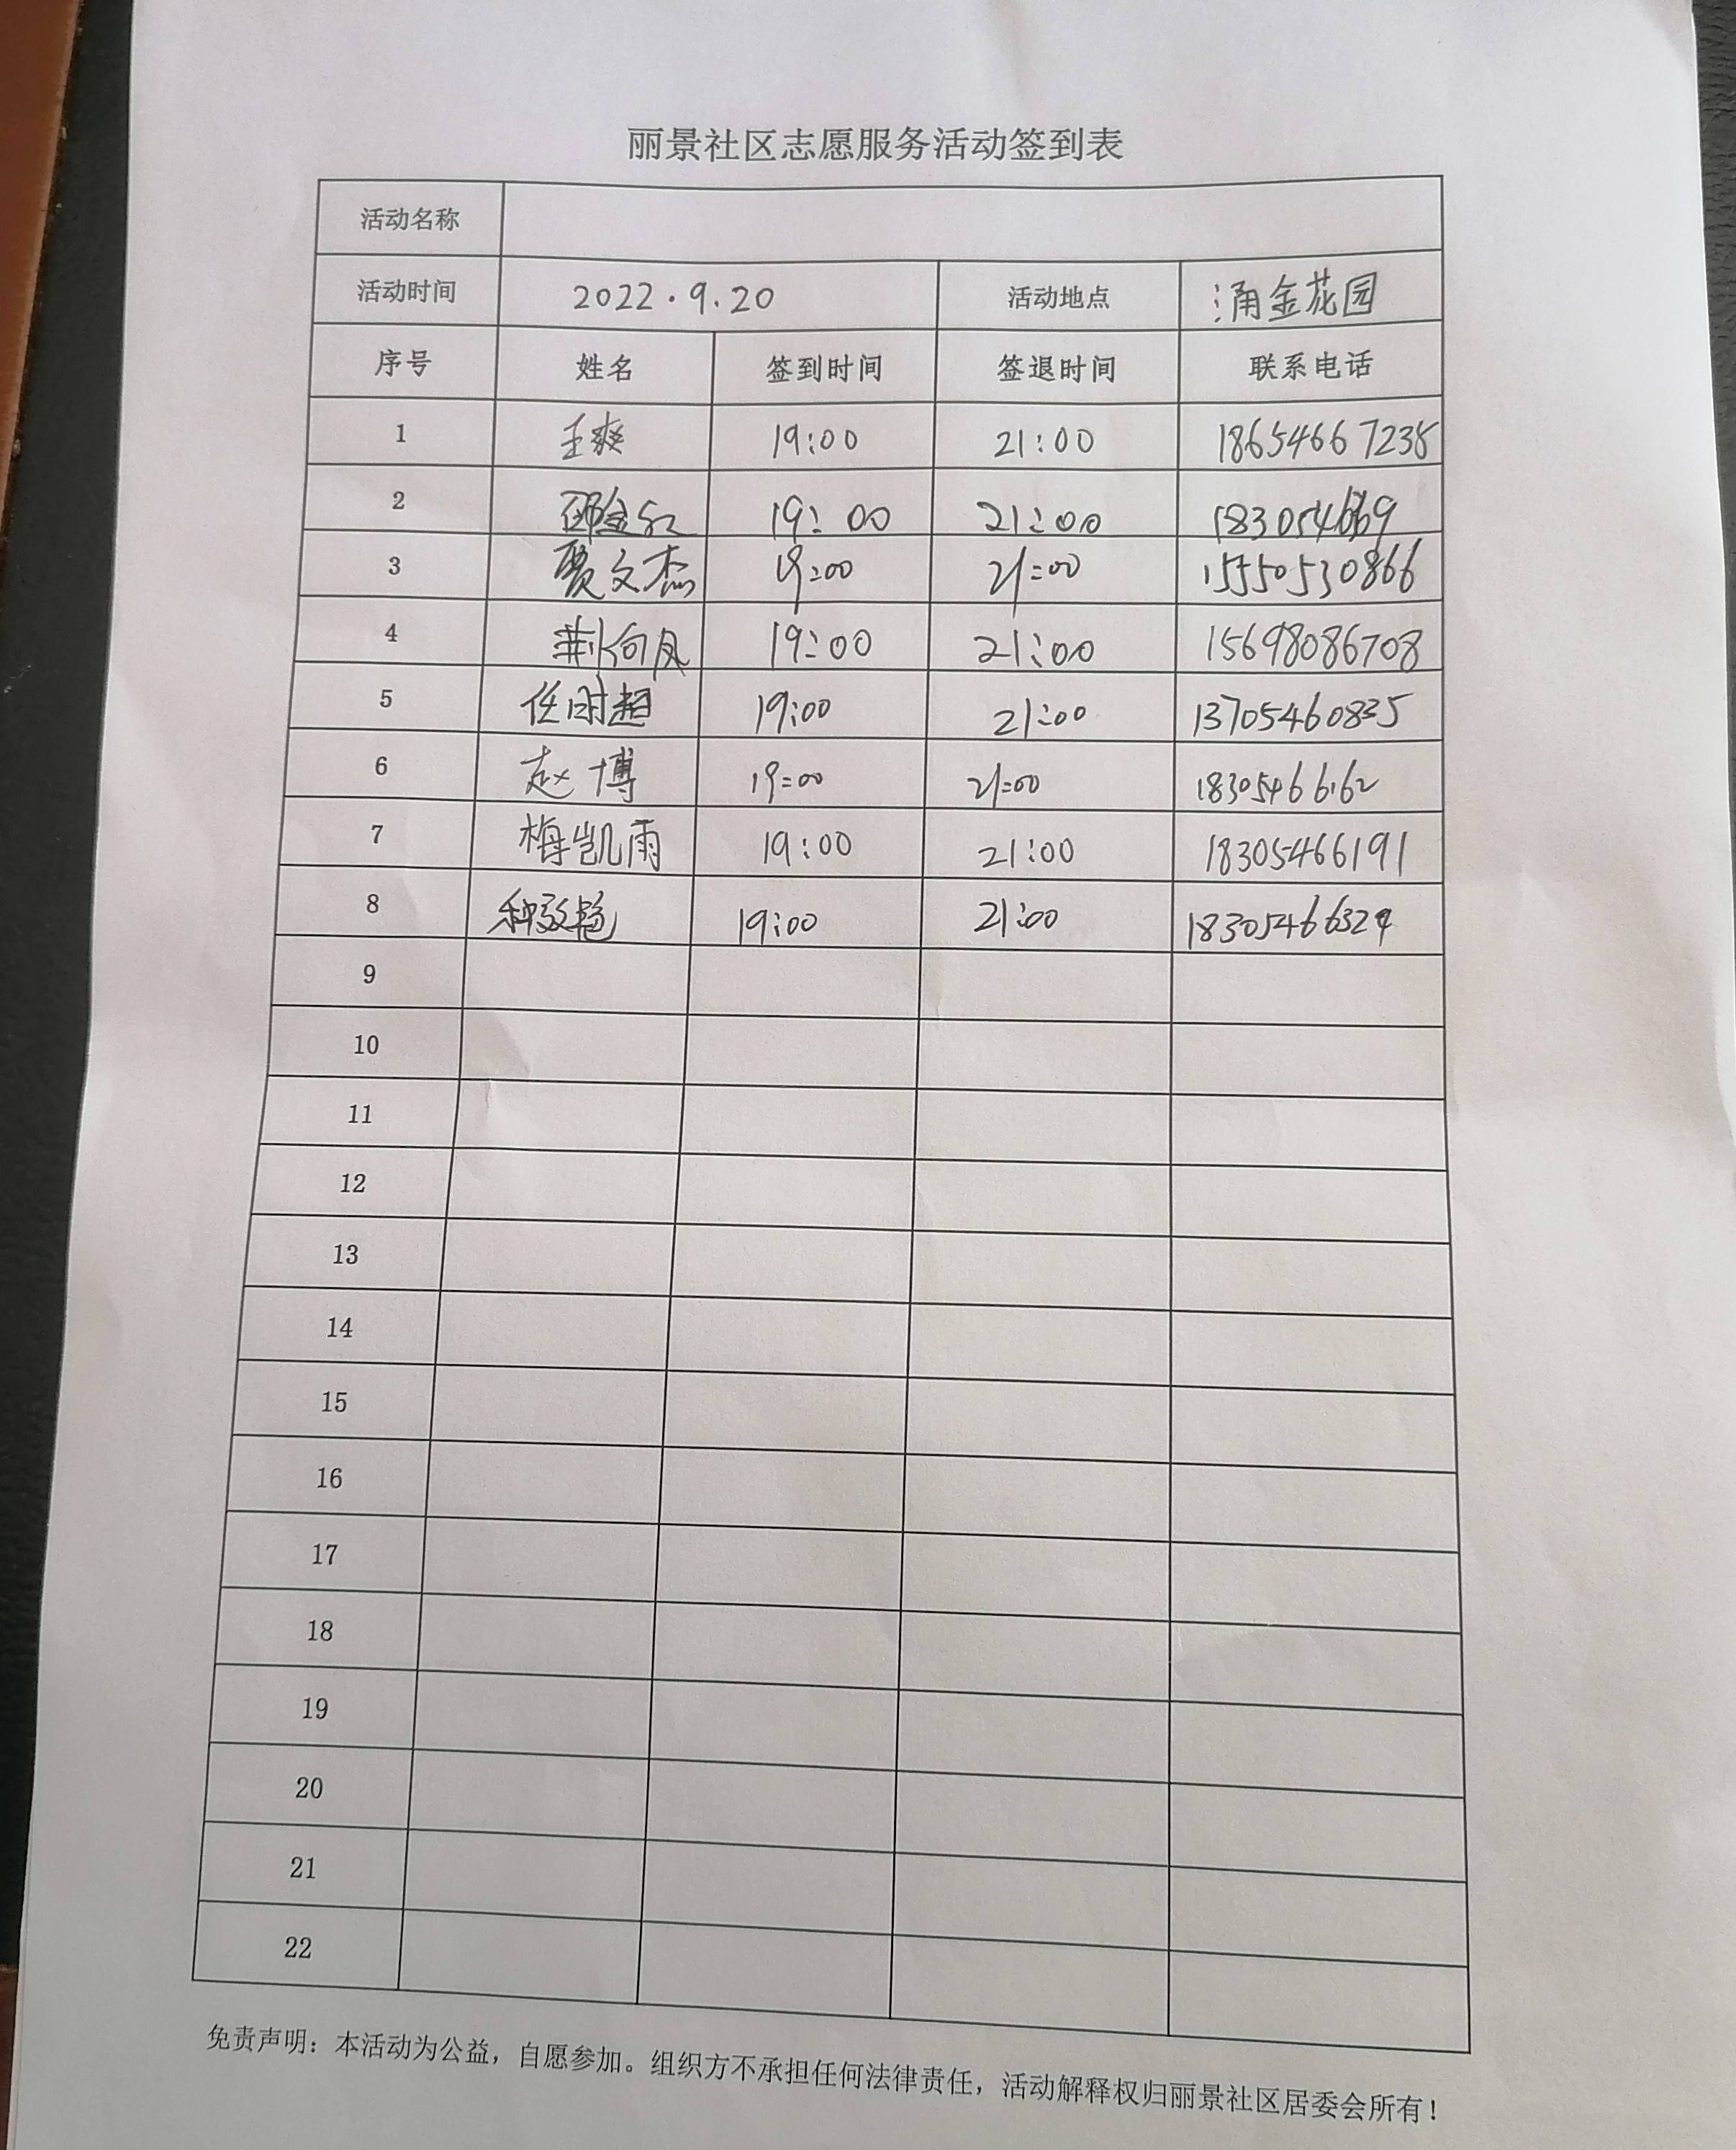 丽景社区志愿服务活动签到表
活动名称
活动时间 2022.9.20 活动地点 涌金花园
序号 姓名 签到时间 签退时间 联系电话
1 王爽 19:00 21:00 18654667238
2 19:00 21:00
3 贾文杰 19:00 21:00 15550530866
4 荆向凤 19:00 21:00 15698086708
5 任时超 19:00 21:00 13705460835
6 赵博 19:00 21:00 18305466162
7 梅凯雨 19:00 21:00 18305466191
8 19:00 21:00 18305466324
9
10
11
12
13
14
15
16
17
18
19
20
21
22
免责声明：本活动为公益，自愿参加。组织方不承担任何法律责任，活动解释权归丽景社区居委会所有！